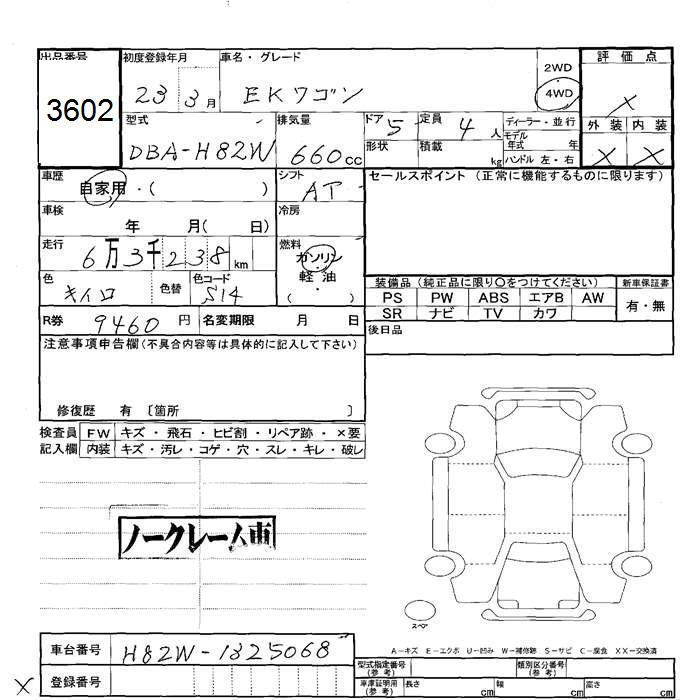 出品番号
3602
初度登録年月
23 3月
車名・グレード
EKワゴン
2WD
4WD
評価点
×
外装 内装
× ×
型式
DBA-H82W
排気量
660cc
ドア 5
定員 4人
ディーラー・並行
モデル年式 年
形状
積載 kg
ハンドル 左・右
車歴
自家用・( )
シフト
AT
セールスポイント (正常に機能するものに限ります)
車検
年 月( 日)
冷房
走行
6万3千238km
燃料
ガソリン
・
軽油
( )
色
キイロ
色替
色コード
S14
装備品 (純正品に限り〇をつけてください)
新車保証書
PS PW ABS エアB AW
有・無
SR ナビ TV カワ
R券 9460円
名変期限 月 日
後日品
注意事項申告欄(不具合内容等は具体的に記入して下さい)
修復歴 有 〔箇所 〕
検査員記入欄
FW キズ・飛石・ヒビ割・リペア跡・×要
内装 キズ・汚レ・コゲ・穴・スレ・キレ・破レ
ノークレーム車
スペア
A−キズ E−エクボ U−凹み W−補修跡 S−サビ C−腐食 XX−交換済
車台番号
H82W-1325068
型式指定番号(参考)
類別区分番号(参考)
× 登録番号
車庫証明用(参考)
長さ cm
幅 cm
高さ cm